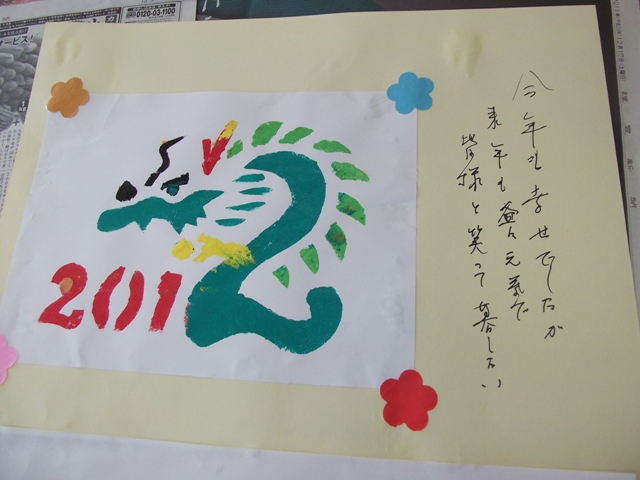 今年も幸せでしたが
来年も螢元気で
皆様と笑って暮したい
2012
0120-03-1100
サービス!